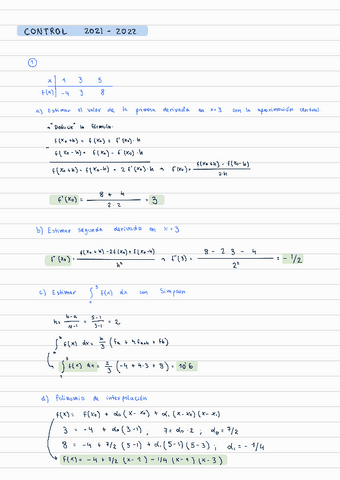 CONTROL 2021 - 2022
1
x | 1 3 5
f(x) | -4 3 8
a) Estimar el valor de la primera derivada en x=3 con la aproximación central
"Deducir" la fórmula:
f(x₀+h) = f(x₀) + f'(x₀)·h
- f(x₀-h) = f(x₀) - f'(x₀)·h
f(x₀+h) - f(x₀-h) = 2 f'(x₀)·h → f'(x₀) = (f(x₀+h) - f(x₀-h)) / 2·h
f'(x₀) = (8 + 4) / (2·2) = 3
b) Estimar segunda derivada en x=3
f''(x₀) = (f(x₀+h) - 2f(x₀) + f(x₀-h)) / h² → f''(3) = (8 - 2·3 - 4) / 2² = -1/2
c) Estimar ∫₁⁵ f(x) dx con Simpson
h = (b-a)/(N-1) = (5-1)/(3-1) = 2
∫ₐᵇ f(x) dx = h/3 (fa + 4fa+h + fb)
∫₁⁵ f(x) dx = 2/3 (-4 + 4·3 + 8) = 10'6
d) Polinomio de interpolación
f(x) = f(x₀) + α₀(x-x₀) + α₁(x-x₀)(x-x₁)
3 = -4 + α₀(3-1), 7 = α₀·2; α₀ = 7/2
8 = -4 + 7/2 (5-1) + α₁(5-1)(5-3); α₁ = -1/4
f(x) = -4 + 7/2 (x-1) - 1/4 (x-1)(x-3)